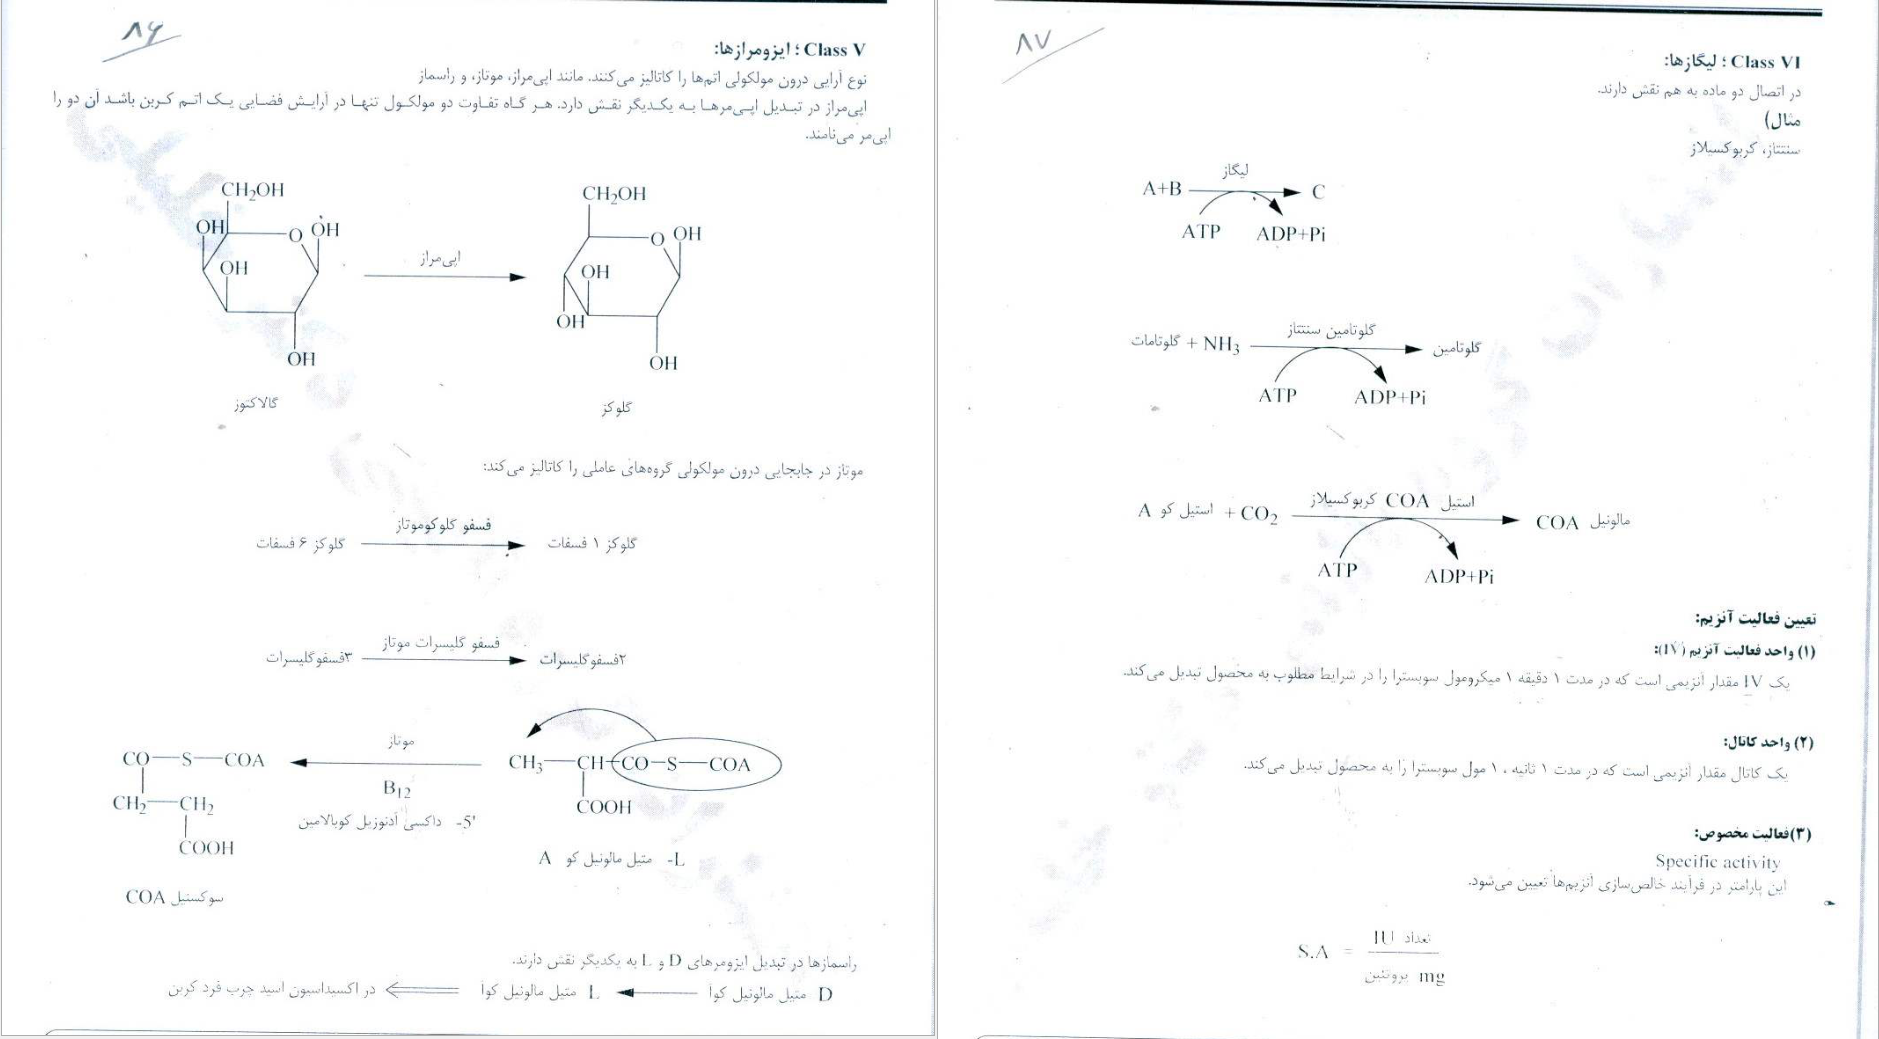 ۸۶
Class V ؛ ایزومرازها:
نوع آرایی درون مولکولی اتم‌ها را کاتالیز می‌کنند. مانند اپی‌مراز، موتاز، و راسماز
اپی‌مراز در تبدیل اپی‌مرها به یکدیگر نقش دارد. هر گاه تفاوت دو مولکول تنها در آرایش فضایی یک اتم کربن باشد آن دو را
اپی‌مر می‌نامند.
CH₂OH
OH
O
OH
OH
OH
گالاکتوز
اپی‌مراز
CH₂OH
O
OH
OH
OH
OH
گلوکز
موتاز در جابجایی درون مولکولی گروه‌های عاملی را کاتالیز می‌کند:
گلوکز ۶ فسفات
فسفو گلوکوموتاز
گلوکز ۱ فسفات
۳فسفوگلیسرات
فسفو گلیسرات موتاز
۲فسفوگلیسرات
CH₃—CH—CO—S—COA
COOH
L- متیل مالونیل کو A
موتاز
B₁₂
5'- داکسی آدنوزیل کوبالامین
CO—S—COA
CH₂—CH₂
COOH
سوکسنیل COA
راسمازها در تبدیل ایزومرهای D و L به یکدیگر نقش دارند.
D متیل مالونیل کوآ
L متیل مالونیل کوآ
در اکسیداسیون اسید چرب فرد کربن
۸۷
Class VI ؛ لیگازها:
در اتصال دو ماده به هم نقش دارند.
مثال)
سنتتاز، کربوکسیلاز
لیگاز
A+B
C
ATP
ADP+Pi
گلوتامین سنتتاز
گلوتامات + NH₃
گلوتامین
ATP
ADP+Pi
استیل COA کربوکسیلاز
استیل کو A + CO₂
مالونیل COA
ATP
ADP+Pi
تعیین فعالیت آنزیم:
(۱) واحد فعالیت آنزیم (IV):
یک IV مقدار آنزیمی است که در مدت ۱ دقیقه ۱ میکرومول سوبسترا را در شرایط مطلوب به محصول تبدیل می‌کند.
(۲) واحد کاتال:
یک کاتال مقدار آنزیمی است که در مدت ۱ ثانیه ، ۱ مول سوبسترا را به محصول تبدیل می‌کند.
(۳)فعالیت مخصوص:
Specific activity
این پارامتر در فرآیند خالص‌سازی آنزیم‌ها تعیین می‌شود.
تعداد IU
S.A =
mg پروتئین